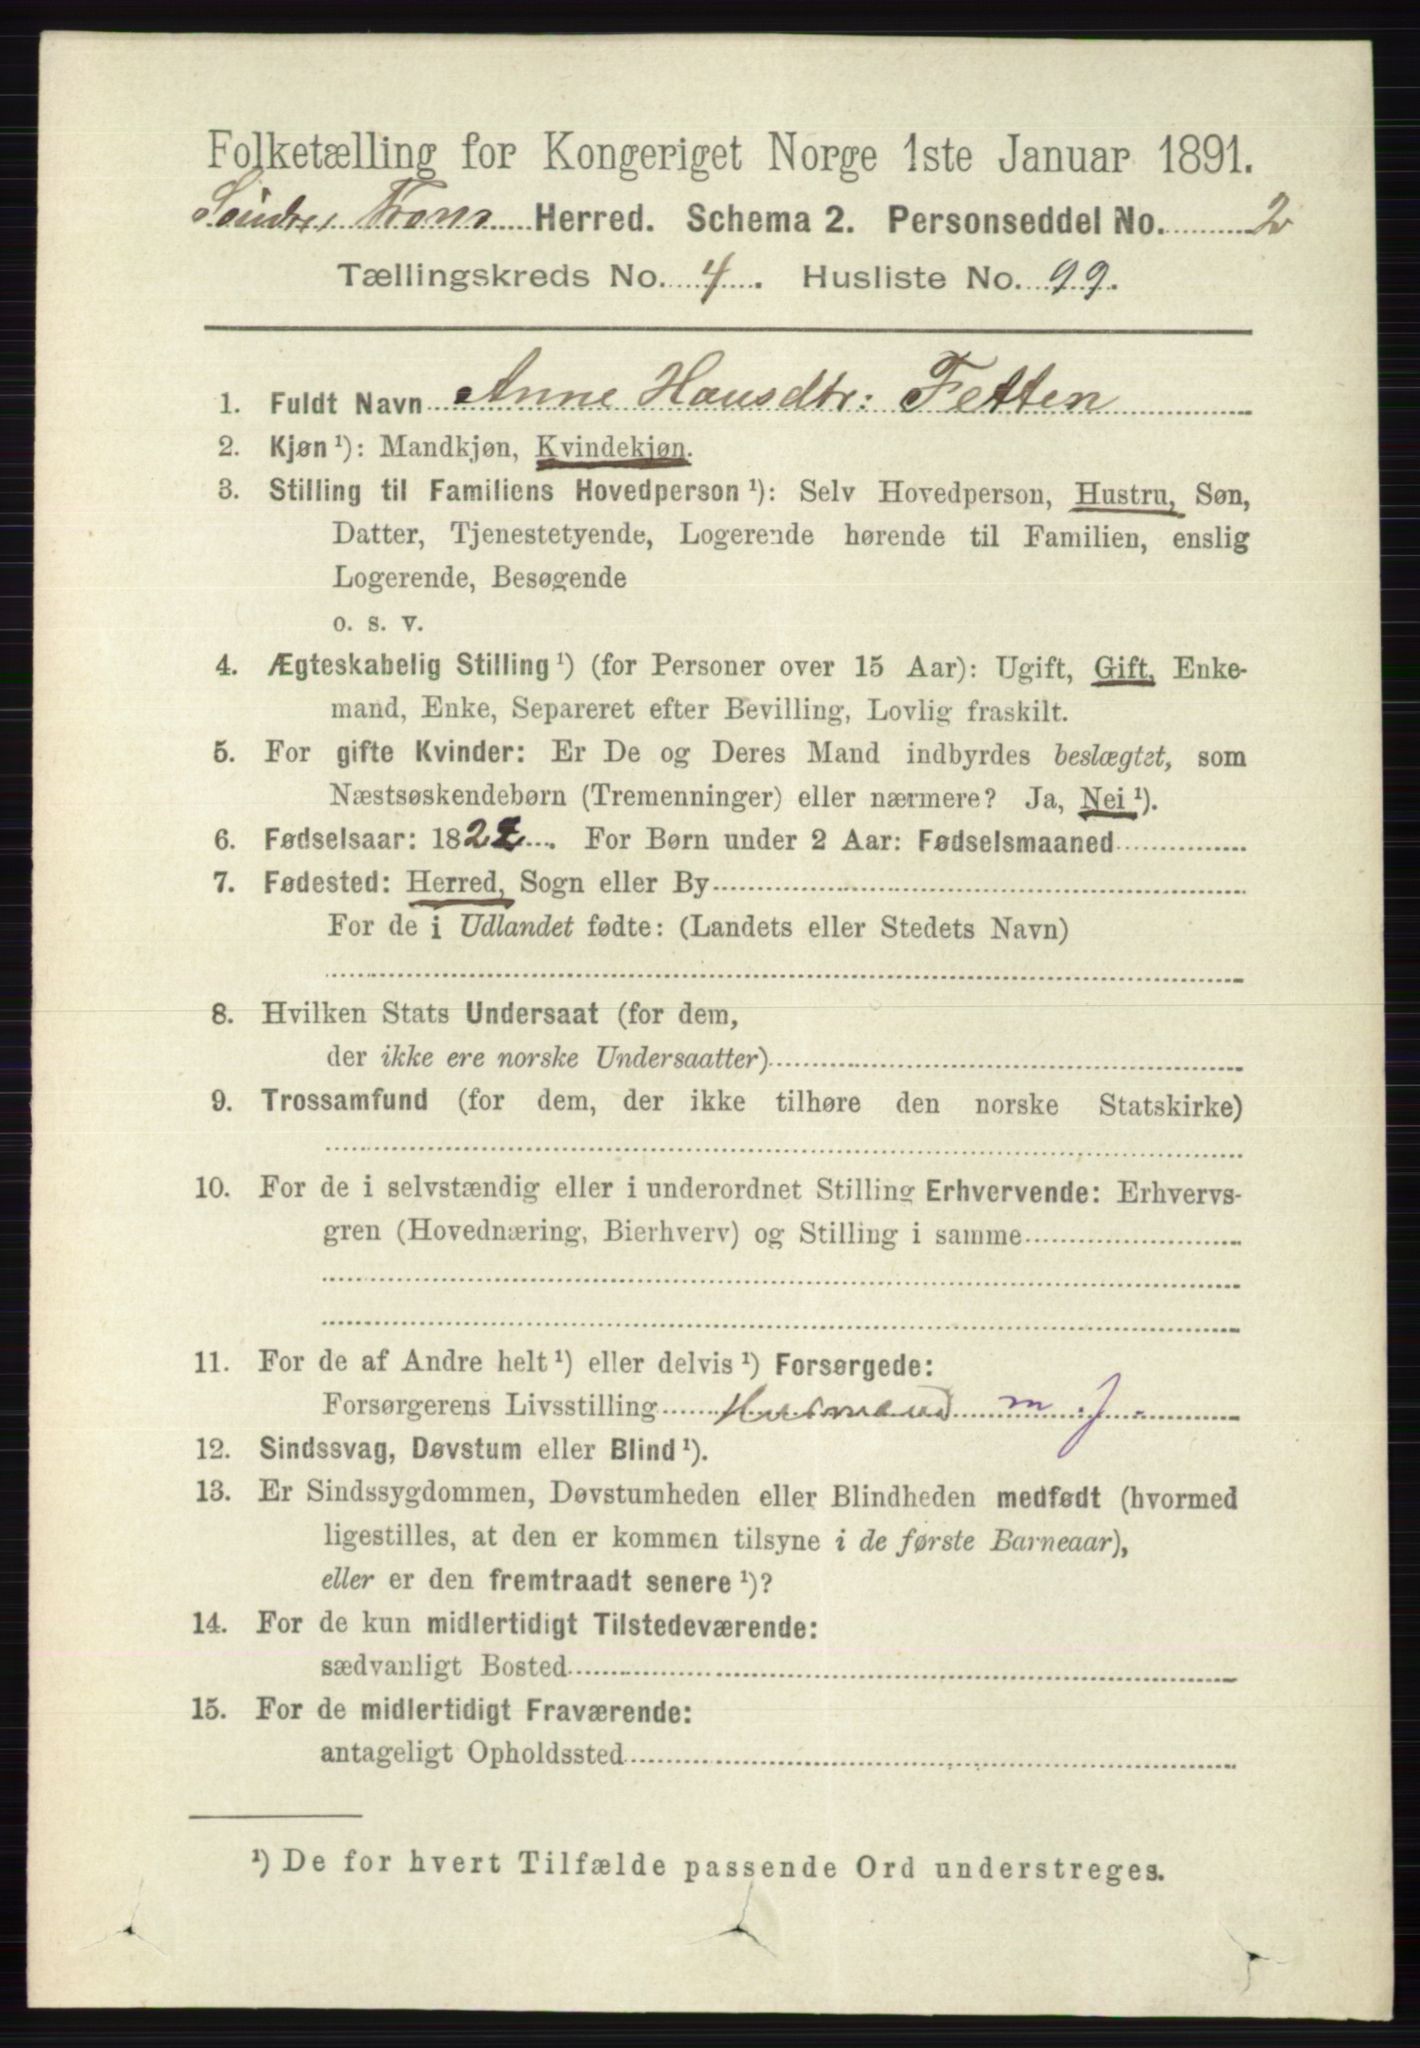 Folketælling for Kongeriget Norge 1ste Januar 1891.
Søndre Fron Herred. Schema 2. Personseddel No. 2
Tællingskreds No. 4. Husliste No. 99.
1. Fuldt Navn Anne Hansdtr: Fetten
2. Kjøn ¹): Mandkjøn, Kvindekjøn.
3. Stilling til Familiens Hovedperson ¹): Selv Hovedperson, Hustru, Søn,
Datter, Tjenestetyende, Logerende hørende til Familien, enslig
Logerende, Besøgende
o. s. v.
4. Ægteskabelig Stilling ¹) (for Personer over 15 Aar): Ugift, Gift, Enke-
mand, Enke, Separeret efter Bevilling, Lovlig fraskilt.
5. For gifte Kvinder: Er De og Deres Mand indbyrdes beslægtet, som
Næstsøskendebørn (Tremenninger) eller nærmere? Ja, Nei ¹).
6. Fødselsaar: 182. For Børn under 2 Aar: Fødselsmaaned
7. Fødested: Herred, Sogn eller By
For de i Udlandet fødte: (Landets eller Stedets Navn)
8. Hvilken Stats Undersaat (for dem,
der ikke ere norske Undersaatter)
9. Trossamfund (for dem, der ikke tilhøre den norske Statskirke)
10. For de i selvstændig eller i underordnet Stilling Erhvervende: Erhvervs-
gren (Hovednæring, Bierhverv) og Stilling i samme
11. For de af Andre helt ¹) eller delvis ¹) Forsørgede:
Forsørgerens Livsstilling Husmand m. J.
12. Sindssvag, Døvstum eller Blind ¹).
13. Er Sindssygdommen, Døvstumheden eller Blindheden medfødt (hvormed
ligestilles, at den er kommen tilsyne i de første Barneaar),
eller er den fremtraadt senere ¹)?
14. For de kun midlertidigt Tilstedeværende:
sædvanligt Bosted
15. For de midlertidigt Fraværende:
antageligt Opholdssted
¹) De for hvert Tilfælde passende Ord understreges.